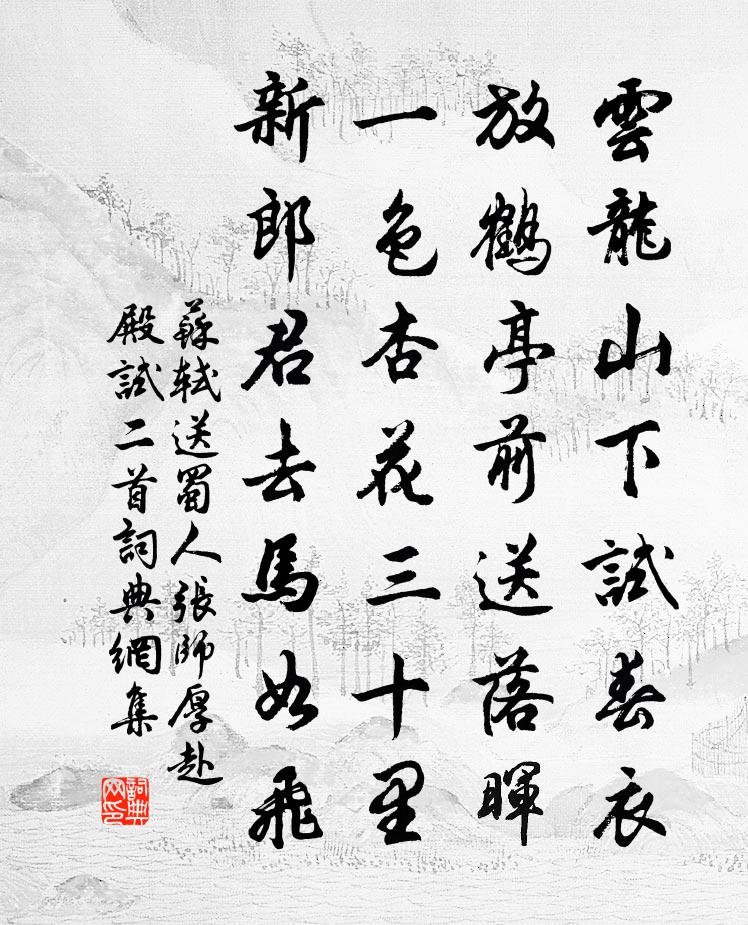 雲龍山下試春衣
放鶴亭前送落暉
一色杏花三十里
新郎君去馬如飛
蘇軾送蜀人張師厚赴
殿試二首詞典網集
詞典
网印